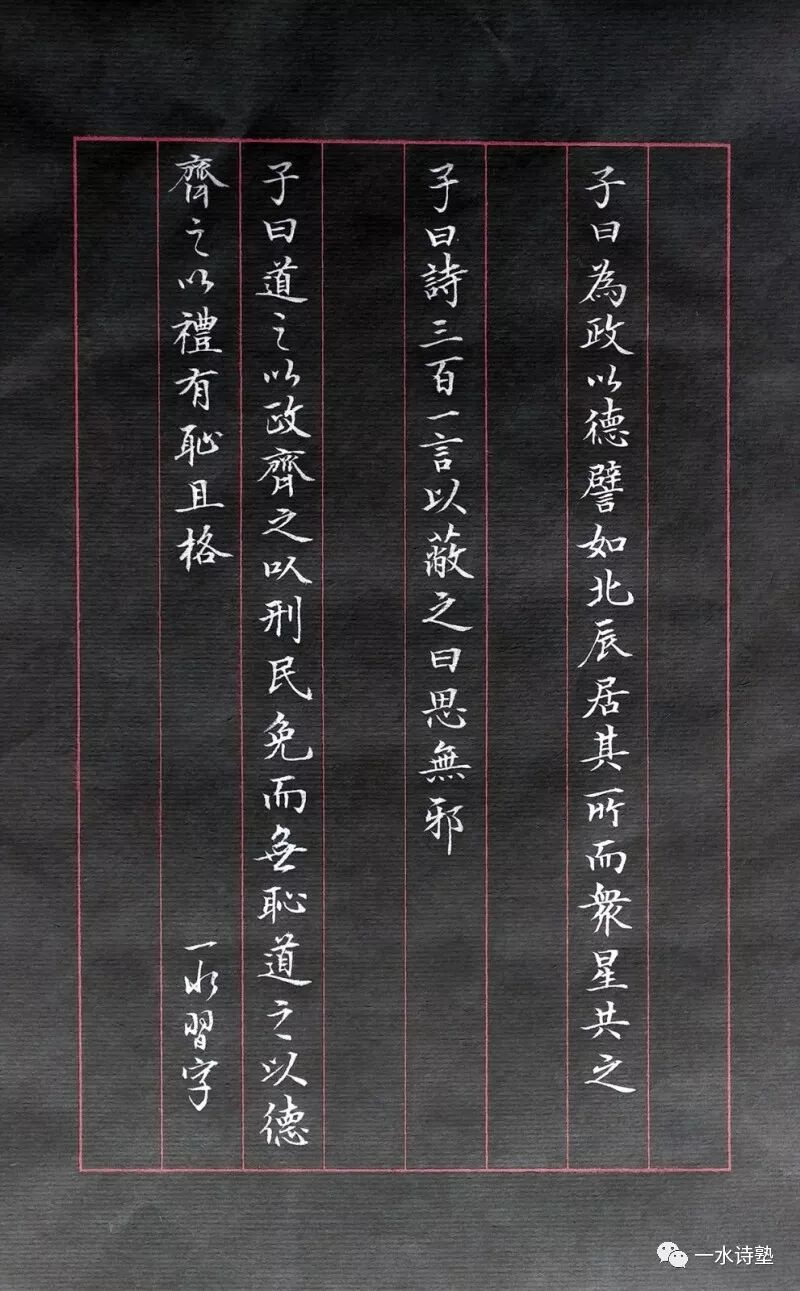 子曰為政以德譬如北辰居其所而衆星共之
子曰詩三百一言以蔽之曰思無邪
子曰道之以政齊之以刑民免而無恥道之以德
齊之以禮有恥且格
一水習字
一水诗塾